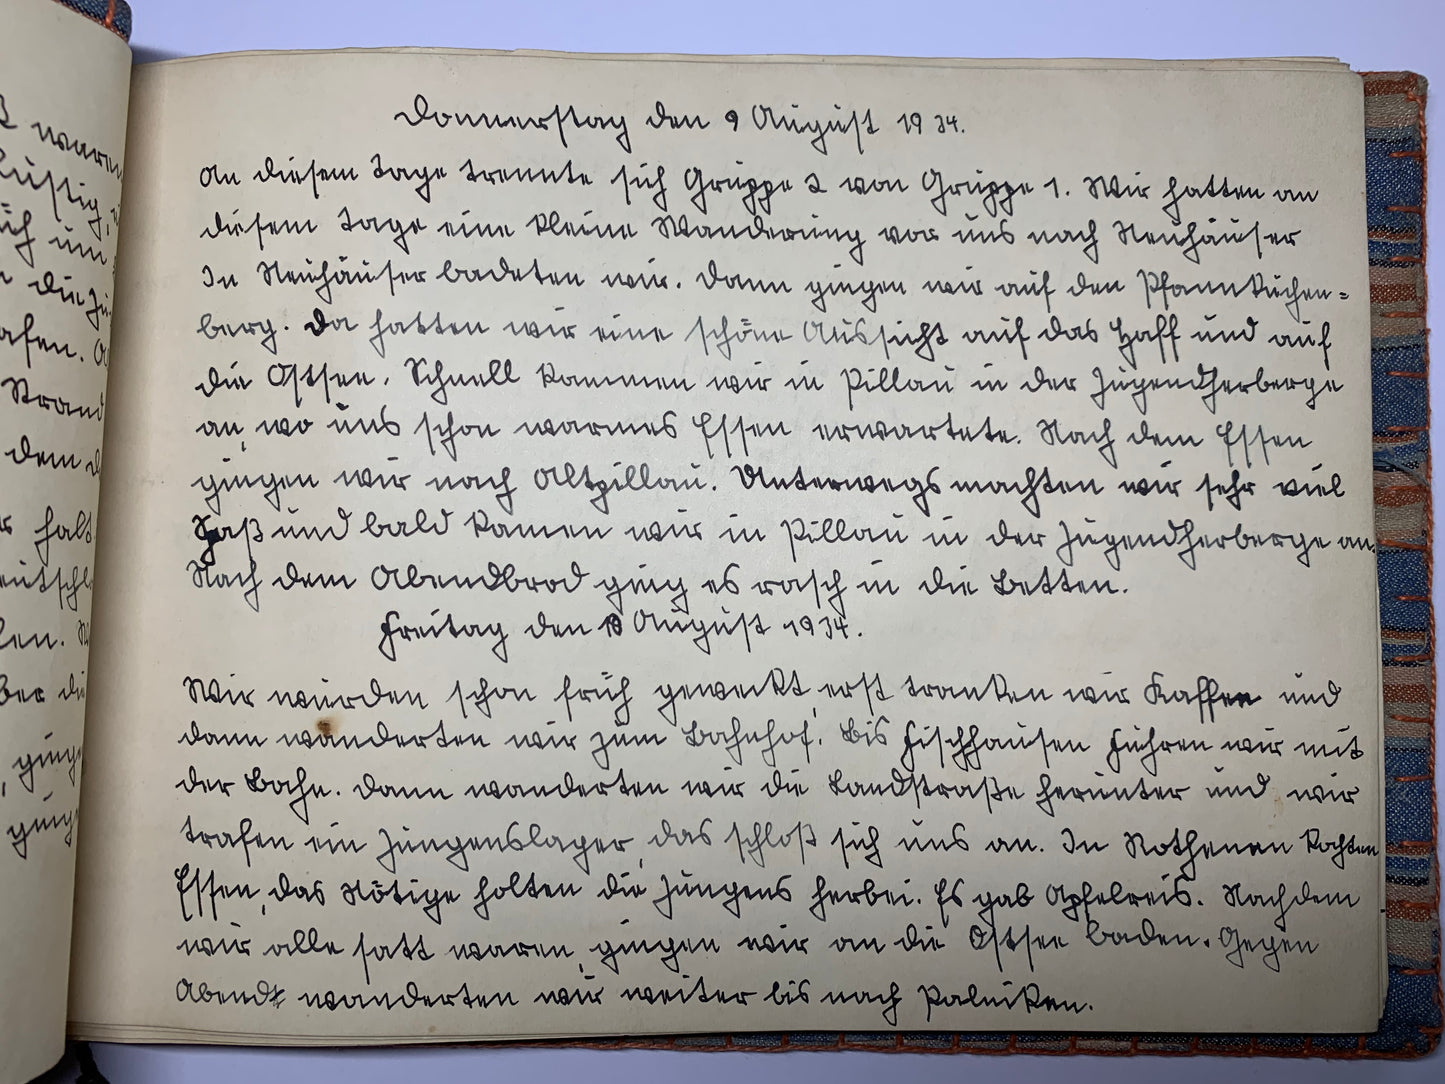 Donnerstag den 9 August 1934.
An diesem Tage trennte sich Gruppe 2 von Gruppe 1. Wir hatten an
diesem Tage eine kleine Wanderung vor uns nach Neuhäuser
In Neuhäuser badeten wir. Dann gingen wir auf den Pfannkuchen-
berg. Da hatten wir eine schöne Aussicht auf das Haff und auf
die Ostsee. Schnell kammen wir in Pillau in der Jugendherberge
an, wo uns schon warmes Essen erwartete. Nach dem Essen
gingen wir nach Altpillau. Unterwegs machten wir sehr viel
Spaß und bald kamen wir in Pillau in der Jugendherberge an.
Nach dem Abendbrod ging es rasch in die Betten.
Freitag den 10 August 1934.
Wir wurden schon früh geweckt, erst tranken wir Kaffee und
dann wanderten wir zum Bahnhof. Bis Fischhausen fuhren wir mit
der Bahn. Dann wanderten wir die Landstraße herunter und wir
trafen ein Jungenslager, das schloß sich uns an. In Rothenen kochten
Essen, das Nötige holten die Jungens herbei. Es gab Apfelreis. Nachdem
wir alle satt waren, gingen wir an die Ostsee baden. Gegen
Abend wanderten wir weiter bis nach Palniken.